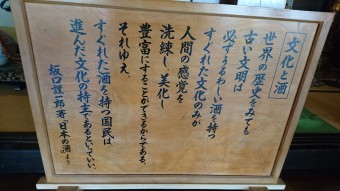 文化と酒
世界の歴史をみても
古い文明は
必ずうるわしい酒を持つ
すぐれた文化のみが
人間の感覚を
洗練し、美化し
豊富にすることができるからである。
それゆえ、
すぐれた酒を持つ国民は
進んだ文化の持主であるといっていい。
坂口謹一郎著「日本の酒」より